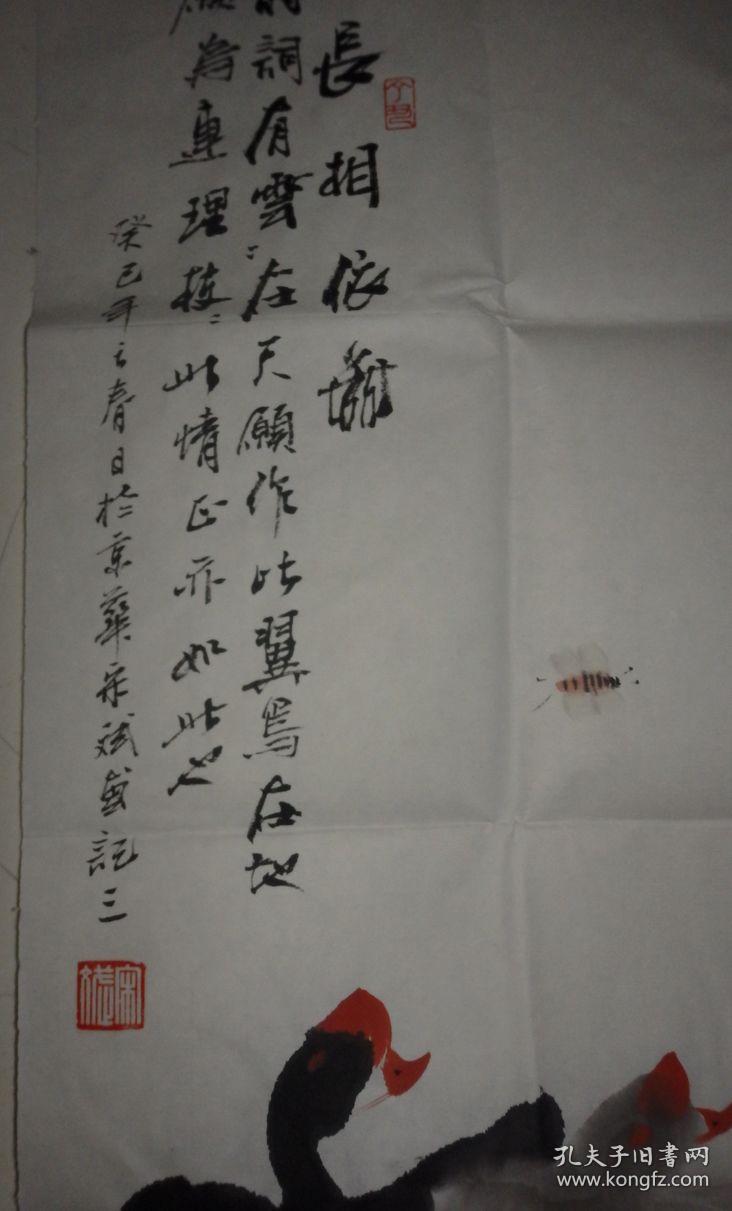 長相依
詞有雲："在天願作比翼鳥在地
願為連理枝"此情正亦如此也
癸巳年之春日於京華宋斌畫記三
宋斌
孔夫子旧書网
www.kongfz.com